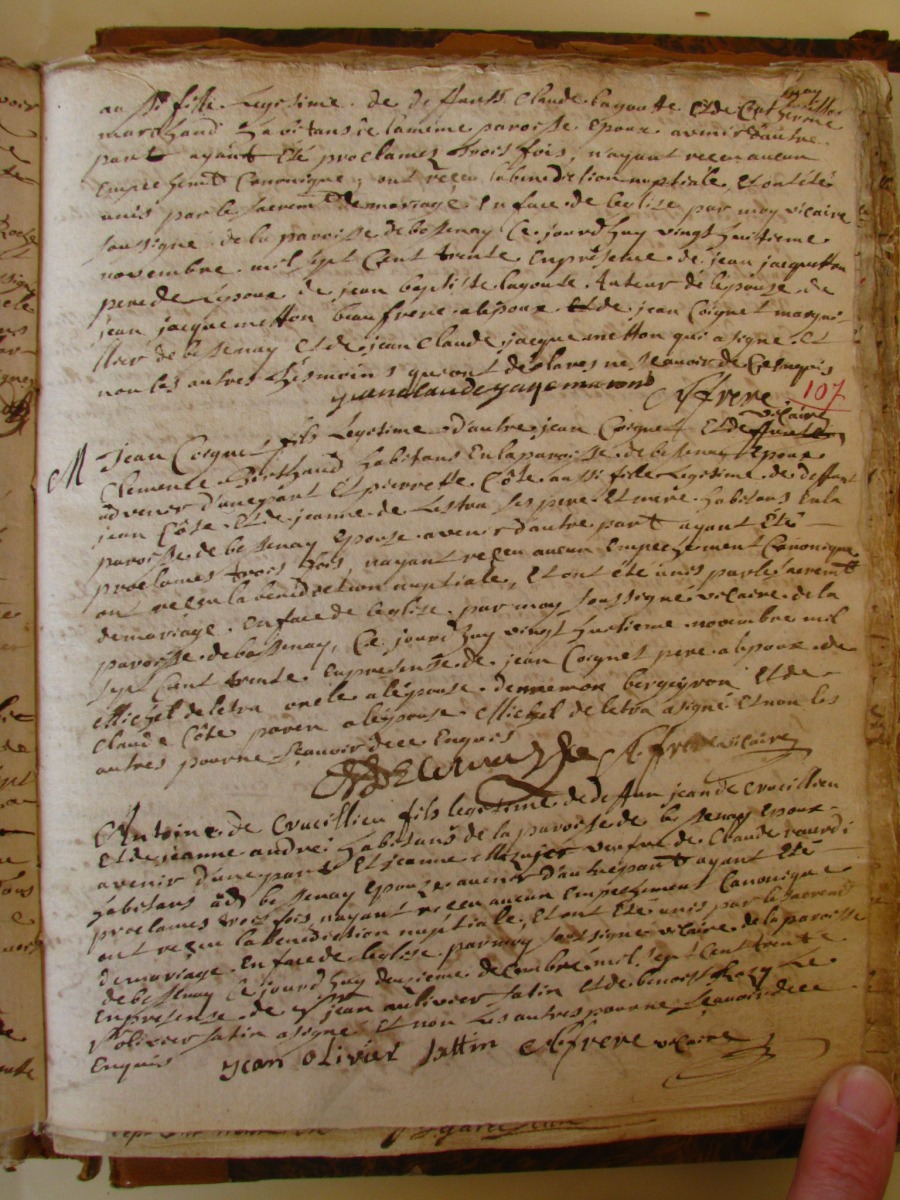 au si fille Legitime de deffunts Claude lagoutte Et de Catherine
marchand habitans de lameme paroisse Epoux avenir d'autre
part ayant Eté proclamez trois fois, n'ayant reçeu aucun
Empechemt Canonique, ont reçeu labenediction nuptiale, Et ont Eté
unis par le Sacremt demariage En face de Leglise par moy vicaire
soussigné de la paroisse debessenay Ce jourdhuy vingt huitieme
novembre mil sept Cent trente Enpresense de jean jacquetton
pere de Lepoux de jean baptiste lagoute de lepouse de
jean jacquemetton beau frere alepoux Et de jean Coignet margui-
llier de bessenay Et de jean Claude jacquemetton qui a signé Et
non les autres tesmoins qui ont declarés ne scavoir de Ce
107
vicaire
M Jean Coignet fils Legitime d'autre jean Coignet Et de
Clemence Berthaud habitans En la paroisse debessenay Epoux
advenir d'une part Et pierrette Côte aussi fille Legitime de deffunt
jean Côte Et de jeanne de Lestra ses pere Et mere habitans En la
paroisse de bessenay Epouse avenir d'autre part ayant Eté
proclames trois fois, nayant reçeu aucun Empechement Canonique
ont reçeu la benediction nuptiale, Et ont été unis par le sacremt
demariage En face de leglise par moy soussigné vicaire de la
paroisse debessenay, Ce jourdhuy vingt huitieme novembre mil
sept Cent trente Enpresense de jean Coignet pere alepoux de
Michel deletra oncle alépouse dennemon bergeyron Et de
Claude Côte paren alépouse Michel de letra a signé Et non les
autres pour ne Scavoir de ce Enquis
vicaire
Antoine de Crucillieu fils legitime de deffun jean de Crucillieu
Et de jeanne andrei habitans de la paroisse de bessenay Epoux
avenir d'une part Et jeanne veufve de Claude
habitans bessenay Epouze avenir d'autre part ayant Eté
proclames trois fois nayant reçeu aucun Empechement Canonique
ont reçeu la benediction nuptiale, Et ont Eté unis par le sacremt
demariage En face de leglise par moy soussigné vicaire de la paroisse
debessenay Ce jourdhuy deuxieme decembre mil sept Cent trente
Enpresense de jean aulivier satin Et de benoist Le
olivier satin a signé Et non Les autres pour ne Scavoir de ce
Enquis jean olivier sattin frere vicaire